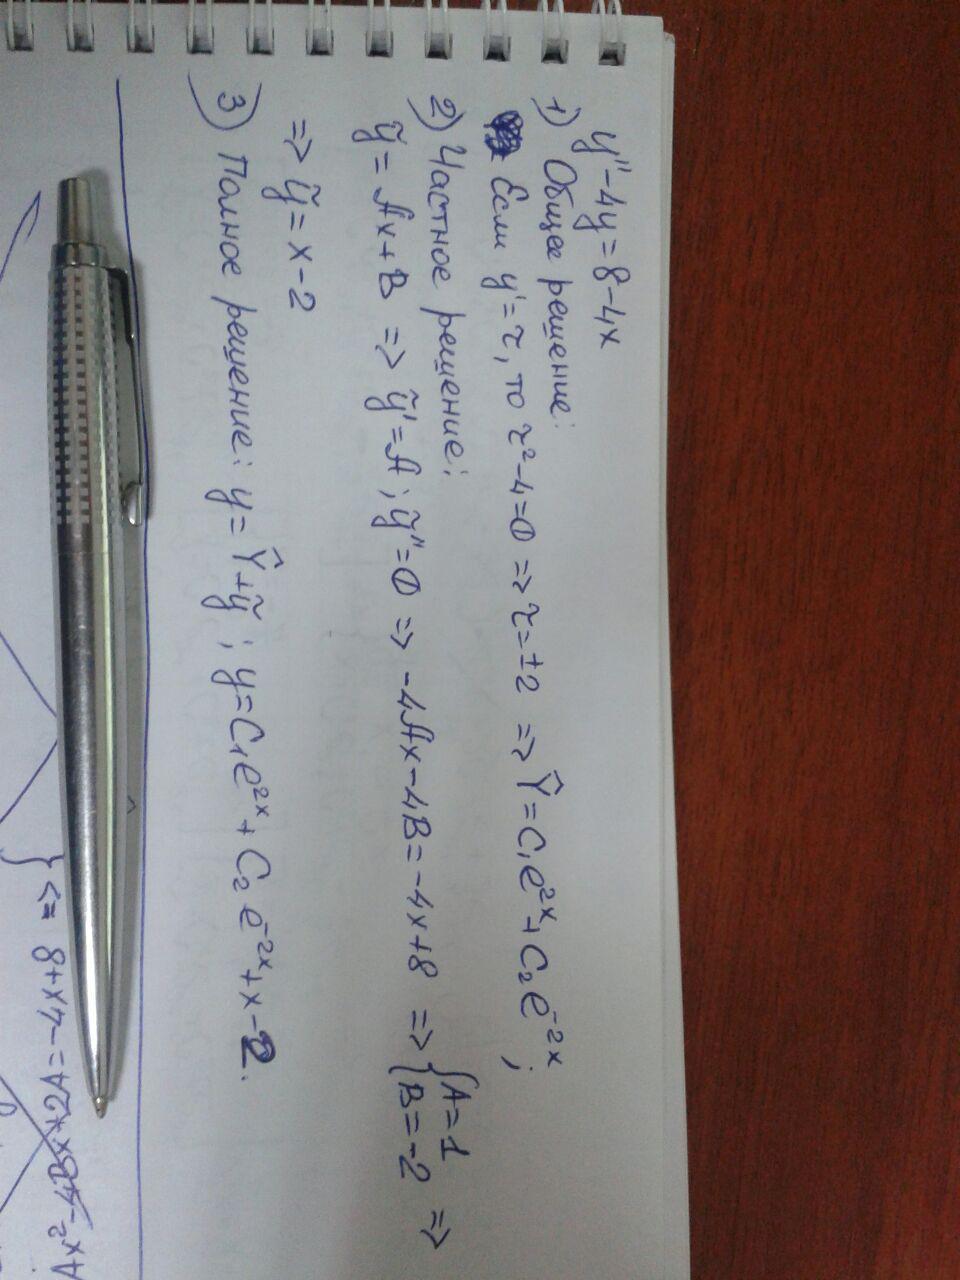 y''-4y=8-4x
1) Общее решение:
Если y'=τ, то τ²-4=0 => τ=±2 => Ŷ=C₁e²ˣ+C₂e⁻²ˣ;
2) Частное решение:
ỹ=Ax+B => ỹ'=A; ỹ''=0 => -4Ax-4B=-4x+8 => {A=1 B=-2 =>
=> ỹ=x-2
3) Полное решение: y=Ŷ+ỹ; y=C₁e²ˣ+C₂e⁻²ˣ+x-2.
=-4x+8 =>